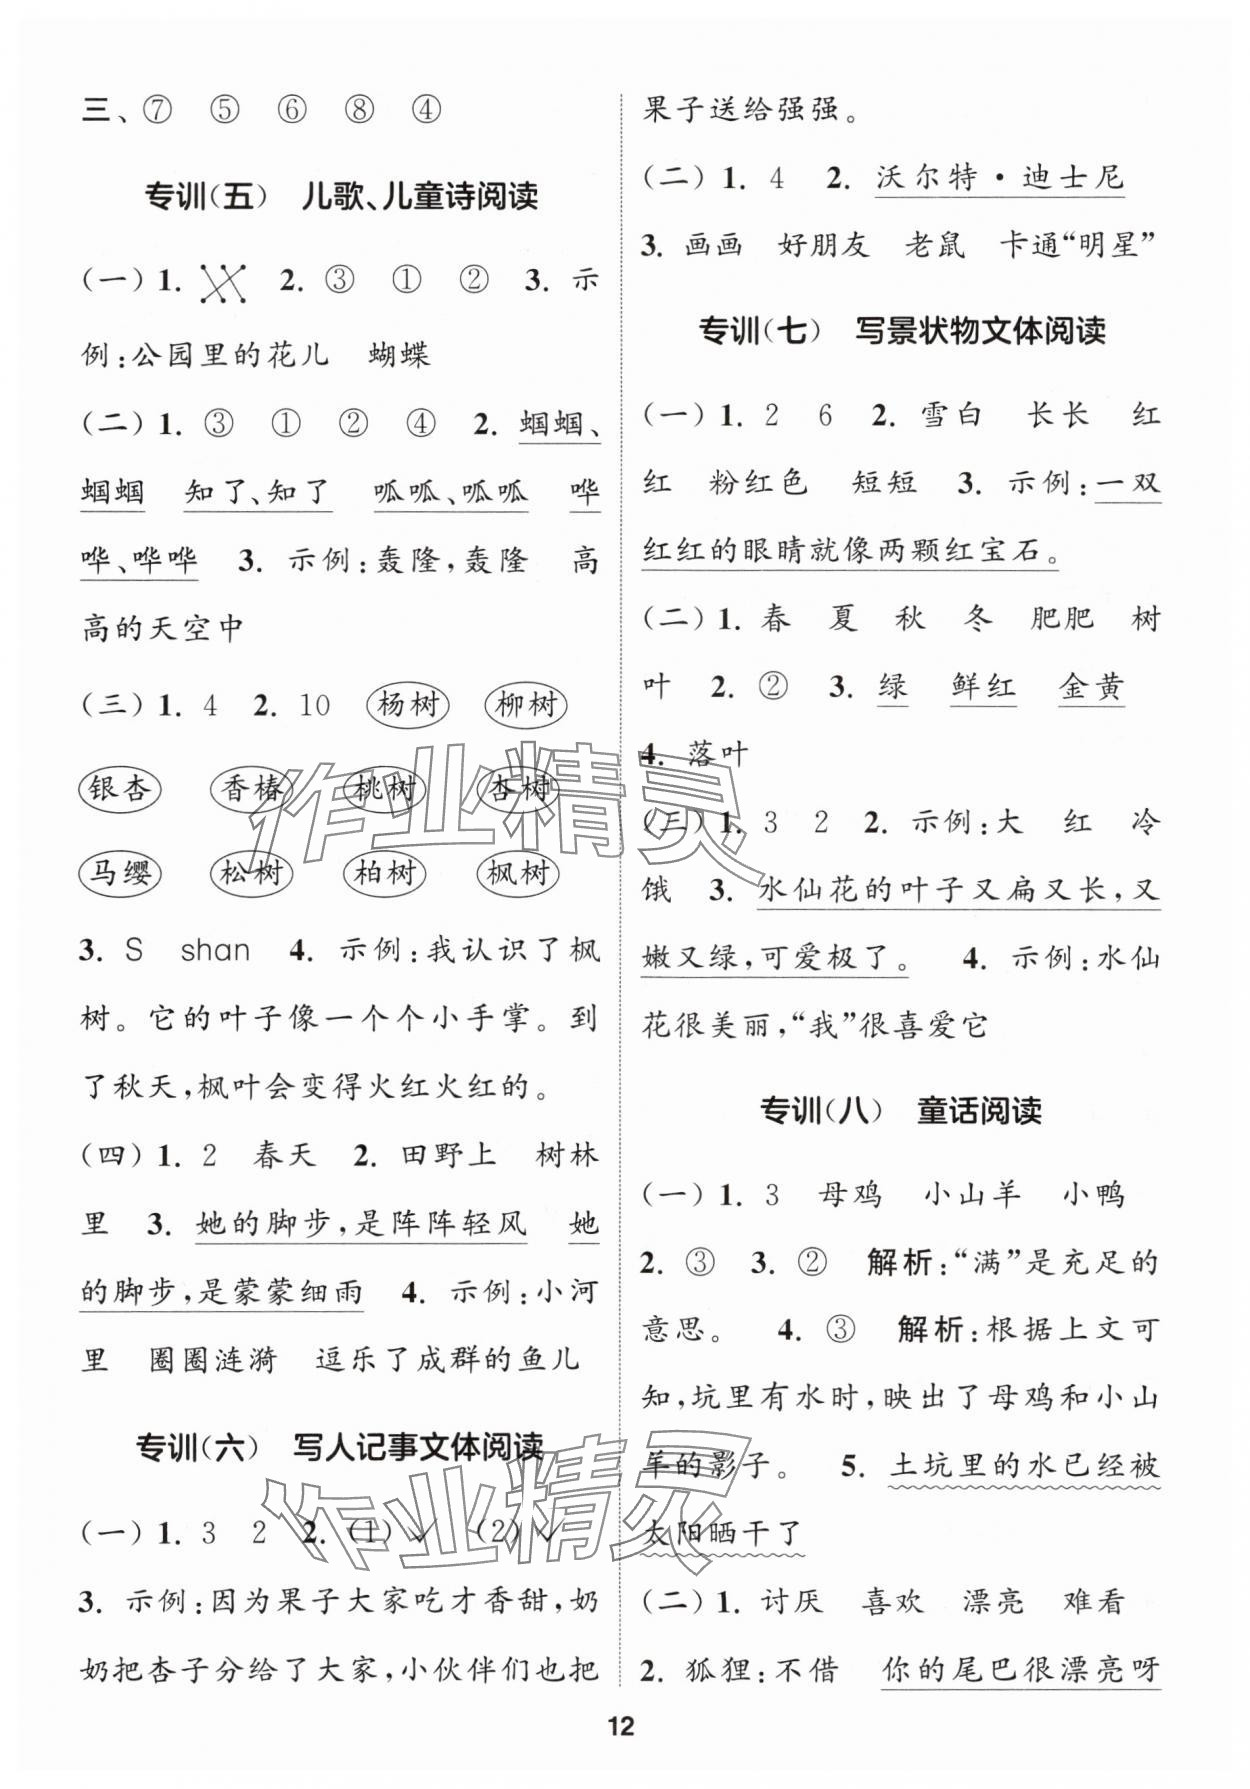 三、⑦ ⑤ ⑥ ⑧ ④
专训(五) 儿歌、儿童诗阅读
(一)1. 2. ③ ① ② 3. 示
例:公园里的花儿 蝴蝶
(二)1. ③ ① ② ④ 2. 蝈蝈、
蝈蝈 知了、知了 呱呱、呱呱 哗
哗、哗哗 3. 示例:轰隆,轰隆 高
高的天空中
(三)1. 4 2. 10 杨树 柳树
银杏 香椿 桃树 杏树
马缨 松树 柏树 枫树
3. S shan 4. 示例:我认识了枫
树。它的叶子像一个个小手掌。到
了秋天,枫叶会变得火红火红的。
(四)1. 2 春天 2. 田野上 树林
里 3. 她的脚步,是阵阵轻风 她
的脚步,是蒙蒙细雨 4. 示例:小河
里 圈圈涟漪 逗乐了成群的鱼儿
专训(六) 写人记事文体阅读
(一)1. 3 2 2. (1)✓ (2)✓
3. 示例:因为果子大家吃才香甜,奶
奶把杏子分给了大家,小伙伴们也把
果子送给强强。
(二)1. 4 2. 沃尔特·迪士尼
3. 画画 好朋友 老鼠 卡通“明星”
专训(七) 写景状物文体阅读
(一)1. 2 6 2. 雪白 长长 红
红 粉红色 短短 3. 示例:一双
红红的眼睛就像两颗红宝石。
(二)1. 春 夏 秋 冬 肥肥 树
叶 2. ② 3. 绿 鲜红 金黄
4. 落叶
(三)1. 3 2 2. 示例:大 红 冷
饿 3. 水仙花的叶子又扁又长,又
嫩又绿,可爱极了。 4. 示例:水仙
花很美丽,“我”很喜爱它
专训(八) 童话阅读
(一)1. 3 母鸡 小山羊 小鸭
2. ③ 3. ② 解析:“满”是充足的
意思。 4. ③ 解析:根据上文可
知,坑里有水时,映出了母鸡和小山
羊的影子。 5. 土坑里的水已经被
太阳晒干了
(二)1. 讨厌 喜欢 漂亮 难看
2. 狐狸:不借 你的尾巴很漂亮呀
12
作业精灵
作业精灵